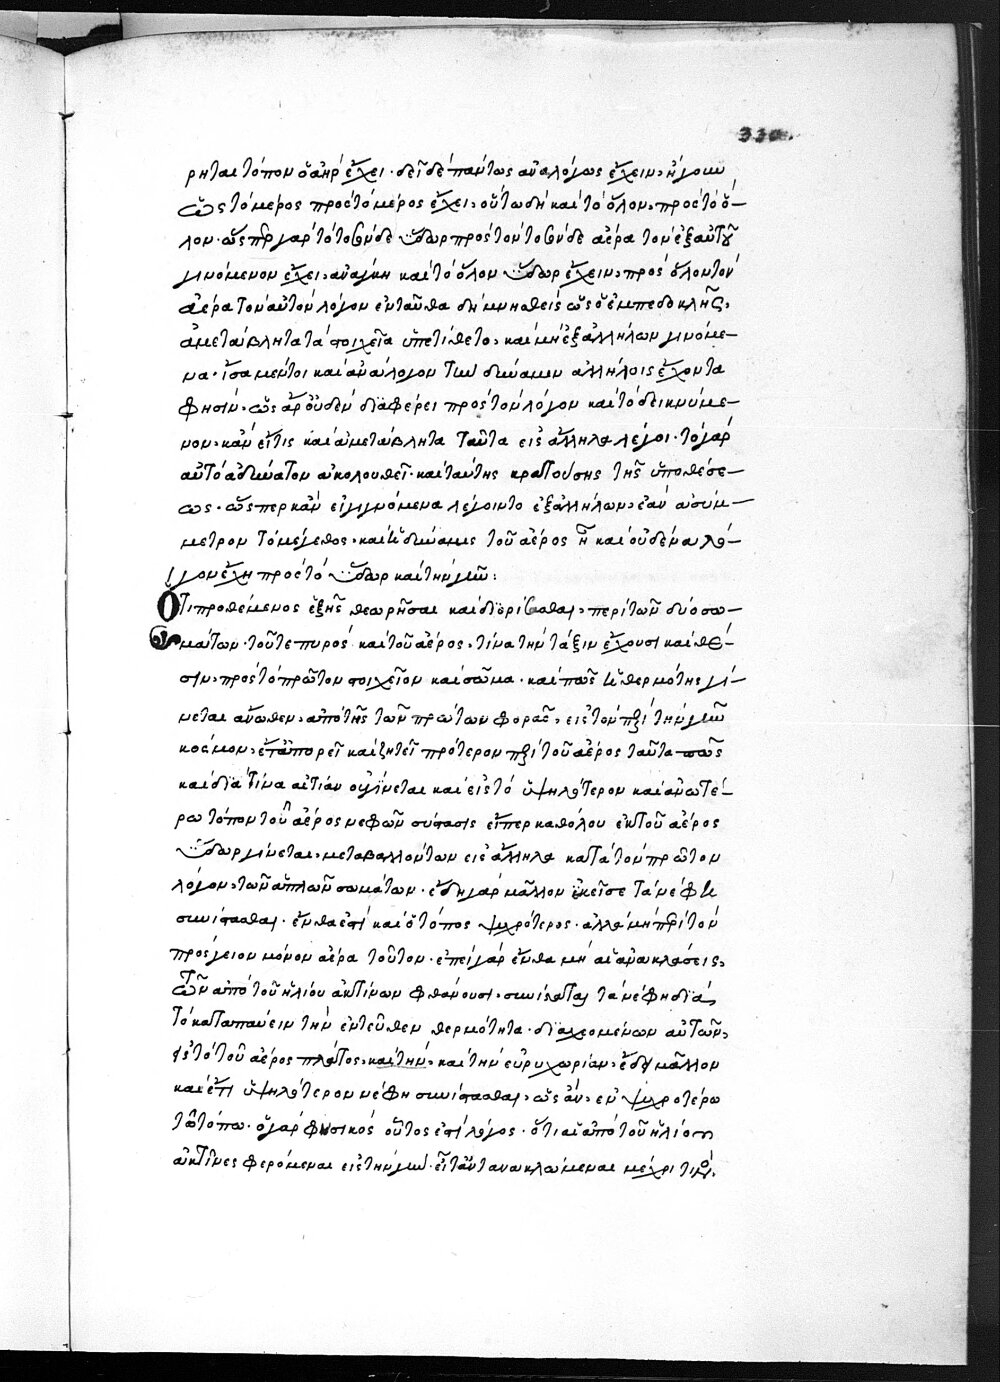 330.
ρηται τόπον ὁ ἀὴρ ἔχει· δεῖ δὲ πάντως ἀναλόγως ἔχειν, ἤγουν
ὡς τὸ μέρος πρὸς τὸ μέρος ἔχει, οὕτω δὴ καὶ τὸ ὅλον, πρὸς τὸ ὅ-
λον· ὥσπερ γὰρ τὸ τοσόνδε ὕδωρ πρὸς τὸν τοσόνδε ἀέρα τὸν ἐξ αὐτοῦ
γινόμενον ἔχει, ἀνάγκη καὶ τὸ ὅλον ὕδωρ ἔχειν, πρὸς ὅλον τὸν
ἀέρα τὸν αὐτὸν λόγον ἐνταῦθα δὴ μνησθεὶς ὡς ὁ ἐμπεδοκλῆς,
ἀμετάβλητα τὰ στοιχεῖα ὑπετίθετο, καὶ μὴ ἐξ ἀλλήλων γινόμε-
να· ἴσα μέντοι καὶ ἀνάλογον τὴν δύναμιν ἀλλήλοις ἔχοντα
φησίν· ὡς ἄρ' οὐδὲν διαφέρει πρὸς τὸν λόγον καὶ τὸ δεικνύμε-
νον, κἂν εἴ τις καὶ ἀμετάβλητα ταῦτα εἰς ἄλληλα λέγοι· τὸ γὰρ
αὐτὸ ἀδύνατον ἀκολουθεῖ· καὶ ταύτης κρατούσης τῆς ὑποθέσε-
ως· ὥσπερ κἂν εἰ γινόμενα λέγοιντο ἐξ ἀλλήλων, ἐὰν ἀσύμ-
μετρον τὸ μέγεθος, καὶ ἡ δύναμις τοῦ ἀέρος ᾖ καὶ οὐδὲν ἀνάλο-
γον ἔχη πρὸς τὸ ὕδωρ καὶ τὴν γῆν:
Ὅτι προθέμενος ἑξῆς θεωρῆσαι καὶ διορίσασθαι, περὶ τῶν δύο σω-
μάτων· τοῦ τε πυρός καὶ τοῦ ἀέρος, τίνα τὴν τάξιν ἔχουσι καὶ θέ-
σιν, πρὸς τὸ πρῶτον στοιχεῖον καὶ σῶμα· καὶ πῶς ἡ θερμότης γί-
νεται ἄνωθεν, ἀπὸ τῆς τῶν πρώτων φορᾶς, εἰς τὸν περὶ τὴν γῆν
κόσμον, ἐπαπορεῖ καὶ ζητεῖ πρότερον περὶ τοῦ ἀέρος ταῦτα πῶς
καὶ διὰ τίνα αἰτίαν οὐ γίνεται καὶ εἰς τὸ ὑψηλότερον καὶ ἀνωτέ-
ρω τόπον τοῦ ἀέρος νεφῶν σύστασις εἴπερ καθόλου ἐκ τοῦ ἀέρος
ὕδωρ γίνεται, μεταβαλλόντων εἰς ἄλληλα κατὰ τὸν πρῶτον
λόγον, τῶν ἁπλῶν σωμάτων· ἔδει γὰρ μᾶλλον ἐκεῖσε τὰ νέφη
συνίστασθαι· ἔνθα ἐστὶ καὶ ὁ τόπος ψυχρότερος· ἀλλὰ μὴ περὶ τὸν
πρόσγειον μόνον ἀέρα τοῦτον· ἐπεὶ γὰρ ἔνθα μὴ αἱ ἀνακλάσεις,
τῶν ἀπὸ τοῦ ἡλίου ἀκτίνων φθάνουσι, συνίσταται τὰ νέφη διὰ
τὸ καταπαύειν τὴν ἐντεῦθεν θερμότητα· διαχεομένων αὐτῶν,
εἰς τὸ τοῦ ἀέρος πλάτος, καὶ τὴν, καὶ τὴν εὐρυχωρίαν, ἔδει μᾶλλον
καὶ ἐπὶ ὑψηλότερον νέφη συνίστασθαι, ὡς ἂν, ἐν ψυχροτέρω
τῶ τόπω· ὁ γὰρ φυσικὸς οὗτος ἐστὶ λόγος· ὅτι αἱ ἀπὸ τοῦ ἡλίου
ἀκτῖνες φερόμεναι εἰς τὴν γῆν· εἶτα ἀνακλώμεναι μέχρι τινός,